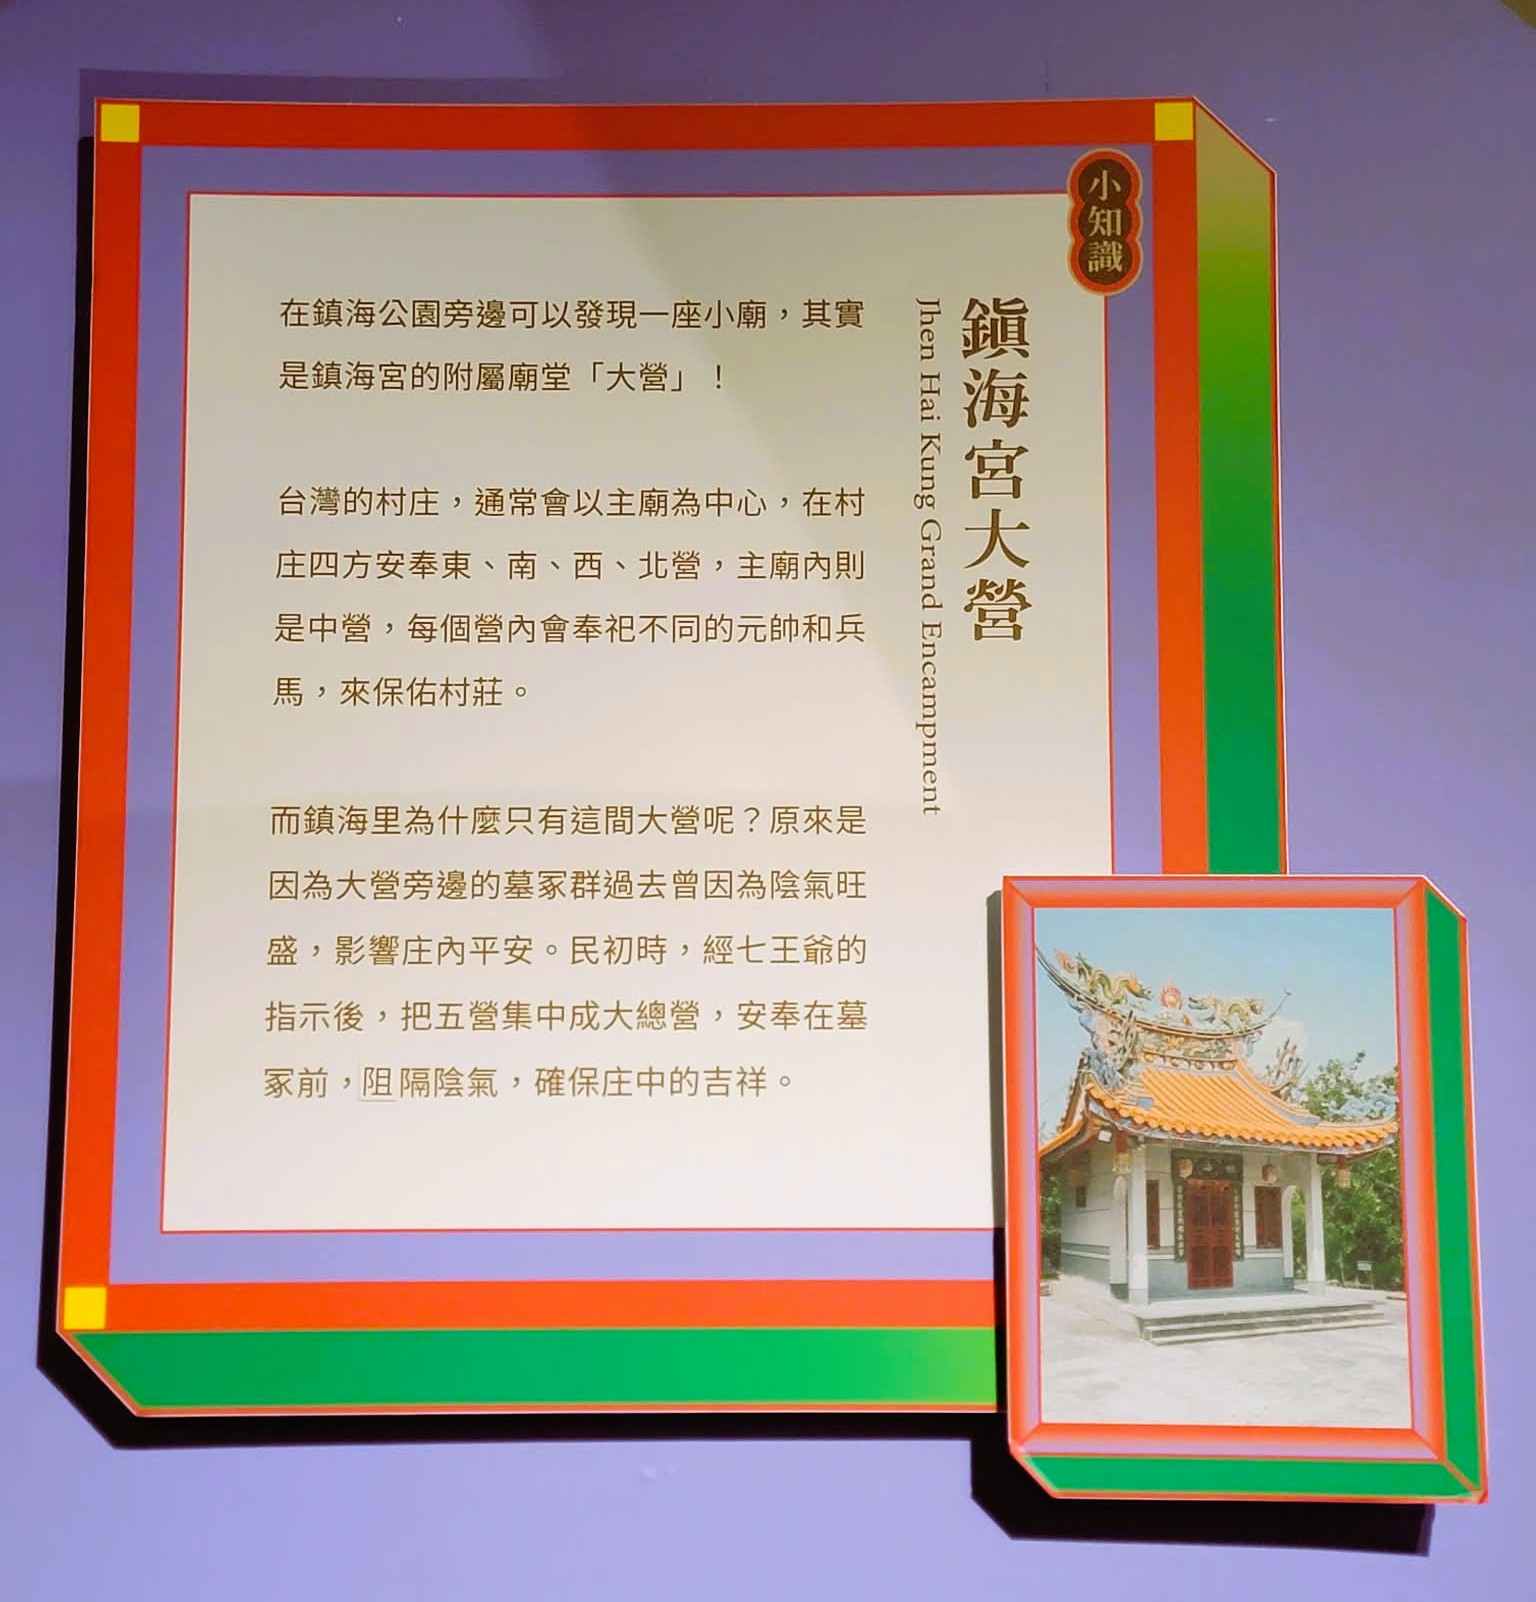 小知識
鎮海宮大營
Jhen Hai Kung Grand Encampment
在鎮海公園旁邊可以發現一座小廟，其實
是鎮海宮的附屬廟堂「大營」！
台灣的村庄，通常會以主廟為中心，在村
庄四方安奉東、南、西、北營，主廟內則
是中營，每個營內會奉祀不同的元帥和兵
馬，來保佑村莊。
而鎮海里為什麼只有這間大營呢？原來是
因為大營旁邊的墓冢群過去曾因為陰氣旺
盛，影響庄內平安。民初時，經七王爺的
指示後，把五營集中成大總營，安奉在墓
冢前，阻隔陰氣，確保庄中的吉祥。